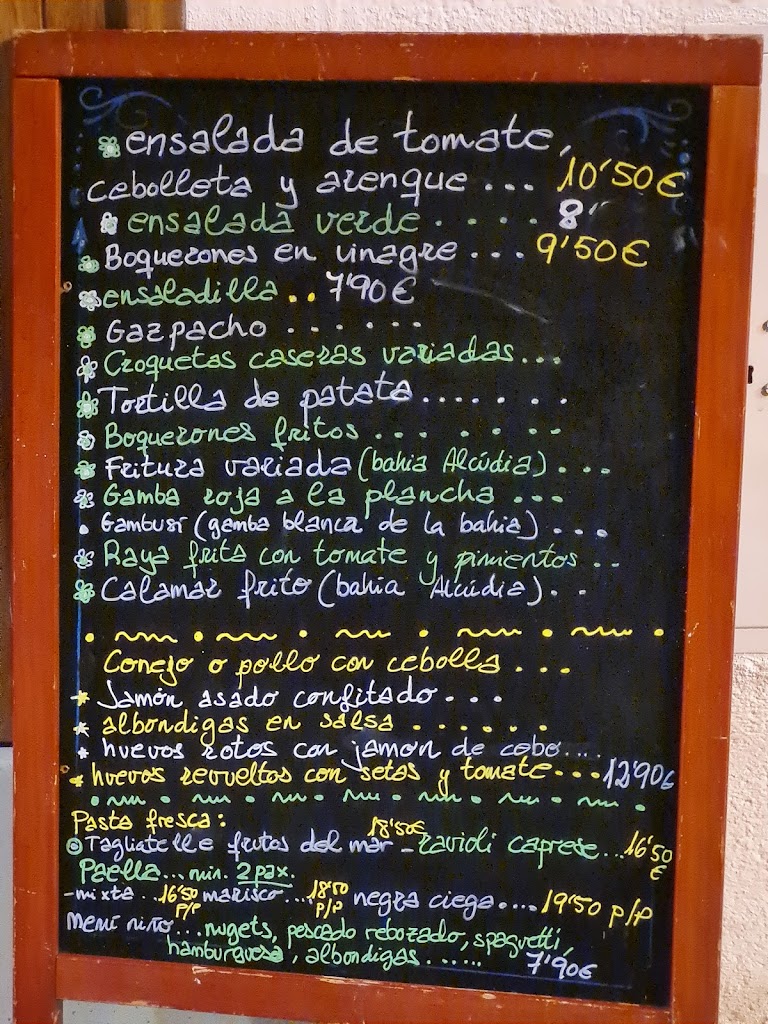 ensalada de tomate,
cebolleta y arenque ... 10'50€
ensalada verde . . . . 8'
Boquerones en vinagre ... 9'50€
ensaladilla .. 7'90€
Gazpacho . . . . . .
Croquetas caseras variadas...
Tortilla de patata..... . .
Boquerones fritos ... . . . .
Fritura variada (bahia Alcúdia) ...
Gamba roja a la plancha ...
Gambusi (gamba blanca de la bahia) ...
Raya frita con tomate y pimientos ..
Calamar frito (bahia Alcúdia) . .
Conejo o pollo con cebolla ...
Jamón asado confitado ...
albondigas en salsa . . . . . .
huevos rotos con jamon de cebo....
huevos revueltos con setas y tomate...12'90€
Pasta fresca:
Tagliatelle frutos del mar 18'50€ - ravioli caprese...16'50€
Paella... min. 2 pax.
-mixta ..16'50 P/P marisco....18'50 P/P negra ciega....19'50 P/P
Menú niño ...nugets, pescado rebozado, spaguetti,
hamburguesa, albondigas ...... 7'90€